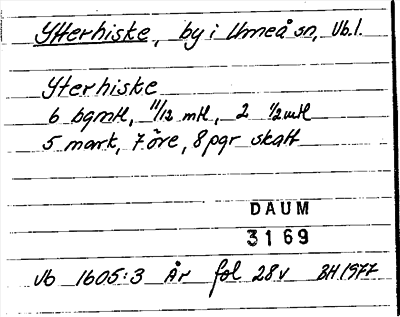 Ytterhiske, by i Umeå sn, Vb.l.
Yterhiske
6 bgmtl, 11/12 mtl, 2 1/2 mtl
5 mark, 7 öre, 8 pgr skatt
DAUM
3169
Vb 1605:3 Är fol 28v BH 1977